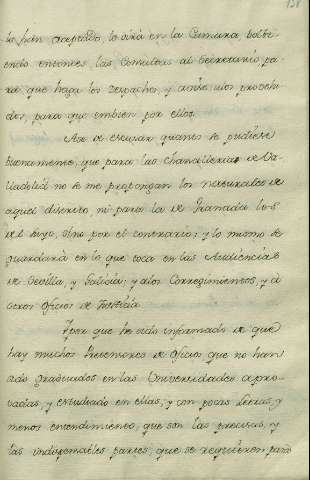 lo han aceptado, lo dirá en la Camara bolvi-
endo entonces las Consultas al Secretario pa-
ra que haga los despachos, y avise a los provehi-
dos, para que embien por ellos.
Ase de escusar quanto se pudiese
buenamente, que para las Chancilleria de Va-
lladolid no se me propongan los naturales de
aquel districto, ni para la de Granada los
del suyo, sino por el contrario; y lo mismo se
guardará en lo que toca en las Audiencias
de Sevilla, y Galicia; y a los Corregimientos, y à
otros Oficios de Justicia.
Y por que he sido informado de que
hay muchos Pretensores de Oficios que no han
sido graduados en las Universidades apro-
vadas, y estudiado en ellas, y con pocas Letras, y
menos entendimiento, que son las precisas, y
las indispensables partes, que se requieren para